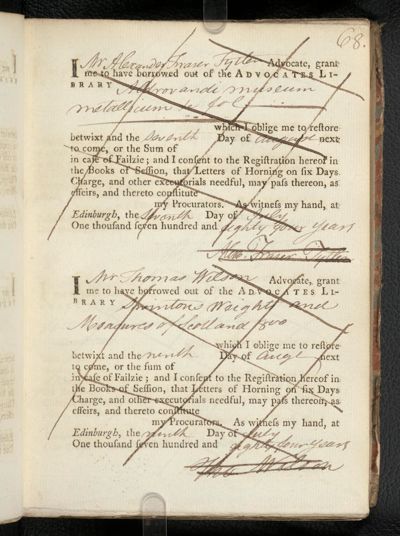 68.
I Mr Alexander Fraser Tytler Advocate, grant
me to have borrowed out of the ADVOCATES LI-
BRARY Aldrovandi museum
metallicum
which I oblige me to restore
betwixt and the Seventh Day of August next
to come, or the Sum of
in case of Failzie; and I consent to the Registration hereof in
the Books of Session, that Letters of Horning on six Days
Charge, and other executorials needful, may pass thereon, as
effeirs, and thereto constitute
my Procurators. As witness my hand, at
Edinburgh, the Seventh Day of July
One thousand seven hundred and eighty four years
Alex. Fraser Tytler
I Mr Thomas Wilson Advocate, grant
me to have borrowed out of the ADVOCATES LI-
BRARY Swintons Weights and
Measures of Scotland 8vo
which I oblige me to restore
betwixt and the ninth Day of Augt next
to come, or the sum of
in case of Failzie; and I consent to the Registration hereof in
the Books of Session, that Letters of Horning on six Days
Charge, and other executorials needful, may pass thereon, as
effeirs, and thereto constitute
my Procurators. As witness my hand, at
Edinburgh, the ninth Day of July
One thousand seven hundred and eighty four years
Tho. Wilson